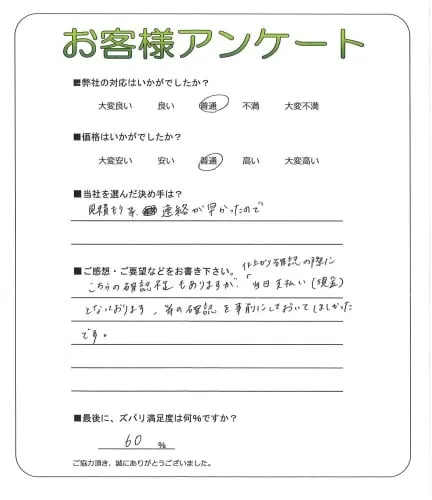 お客様アンケート
■弊社の対応はいかがでしたか？
大変良い 良い 普通 不満 大変不満
■価格はいかがでしたか？
大変安い 安い 普通 高い 大変高い
■当社を選んだ決め手は？
見積もり等、連絡が早かったので
■ご感想・ご要望などをお書き下さい。
仕上がり確認の際に
こちらの確認不足もありますが、「当日支払い(現金)
となっております」等の確認を事前にしておいてほしかった
です。
■最後に、ズバリ満足度は何%ですか？
60 %
ご協力頂き、誠にありがとうございました。